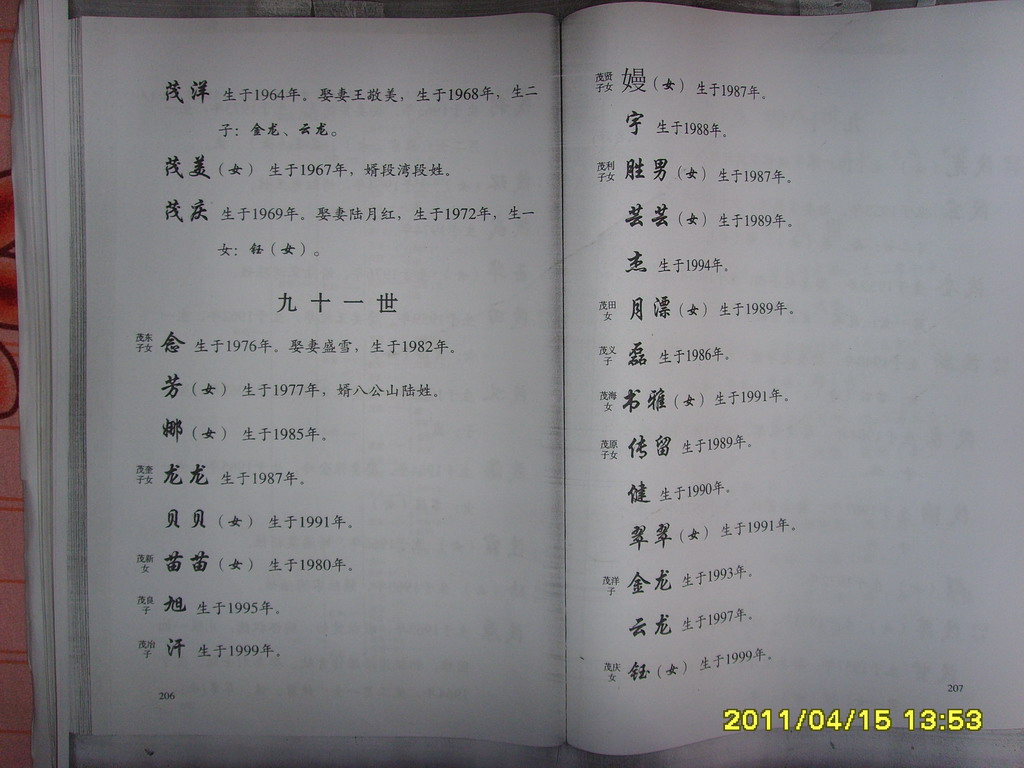 茂洋 生于1964年。娶妻王敬美，生于1968年，生二
子：金龙、云龙。
茂美（女） 生于1967年，婿段湾段姓。
茂庆 生于1969年。娶妻陆月红，生于1972年，生一
女：钰（女）。
九十一世
茂东子女 念 生于1976年。娶妻盛雪，生于1982年。
芳（女） 生于1977年，婿八公山陆姓。
娜（女） 生于1985年。
茂奎子女 龙龙 生于1987年。
贝贝（女） 生于1991年。
茂新女 苗苗（女） 生于1980年。
茂良子 旭 生于1995年。
茂冶子 汗 生于1999年。
206
茂贤子女 嫚（女） 生于1987年。
宇 生于1988年。
茂利子女 胜男（女） 生于1987年。
芸芸（女） 生于1989年。
杰 生于1994年。
茂田女 月漂（女） 生于1989年。
茂义子 磊 生于1986年。
茂海女 书雅（女） 生于1991年。
茂原子女 传留 生于1989年。
健 生于1990年。
翠翠（女） 生于1991年。
茂洋子 金龙 生于1993年。
云龙 生于1997年。
茂庆女 钰（女） 生于1999年。
207
2011/04/15 13:53